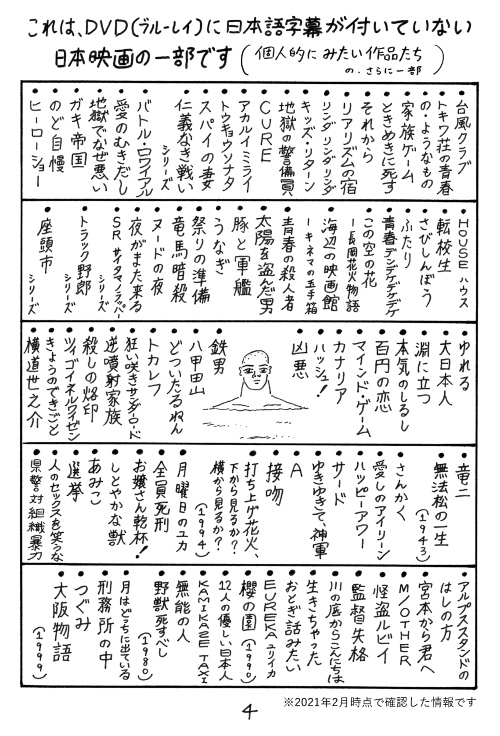 これは、DVD(ブルーレイ)に日本語字幕が付いていない
日本映画の一部です(個人的にみたい作品たち
の、さらに一部)
・台風クラブ
・トキワ荘の青春
・の・ようなもの
・家族ゲーム
・ときめきに死す
・それから
・リアリズムの宿
・リンダリンダリンダ
・キッズ・リターン
・地獄の警備員
・CURE
・アカルイミライ
・トウキョウソナタ
・スパイの妻
・仁義なき戦い
シリーズ
・バトル・ロワイアル
・愛のむきだし
・地獄でなぜ悪い
・ガキ帝国
・のど自慢
・ヒーローショー
・HOUSE ハウス
・転校生
・さびしんぼう
・ふたり
・青春デンデケデケデケ
・この空の花
ー長岡花火物語
・海辺の映画館
ーキネマの玉手箱
・青春の殺人者
・太陽を盗んだ男
・豚と軍艦
・うなぎ
・祭りの準備
・竜馬暗殺
・ヌードの夜
・夜がまた来る
・SR サイタマノラッパー
シリーズ
・トラック野郎
シリーズ
・座頭市
シリーズ
・ゆれる
・大日本人
・淵に立つ
・本気のしるし
・百円の恋
・マインド・ゲーム
・カナリア
・ハッシュ!
・凶悪
・鉄男
・八甲田山
・どついたるねん
・トカレフ
・狂い咲きサンダーロード
・逆噴射家族
・殺しの烙印
・ツィゴイネルワイゼン
・きょうのできごと
・横道世之介
・竜二
・無法松の一生
(1943)
・さんかく
・愛しのアイリーン
・ハッピーアワー
・サード
・ゆきゆきて、神軍
・A
・接吻
・打ち上げ花火、
下から見るか?
横から見るか?
(1994)
・月曜日のユカ
・全員死刑
・お嬢さん乾杯!
・しとやかな獣
・あみこ
・選挙
・人のセックスを笑うな
・県警対組織暴力
・アルプススタンドの
はしの方
・宮本から君へ
・M/OTHER
・怪盗ルビイ
・監督失格
・川の底からこんにちは
・生きちゃった
・おとぎ話みたい
・EUREKA ユリイカ
・櫻の園(1990)
・12人の優しい日本人
・KAMIKAZE TAXI
・無能の人
・野獣死すべし
(1980)
・月はどっちに出ている
・刑務所の中
・つぐみ
・大阪物語
(1999)
※2021年2月時点で確認した情報です
4